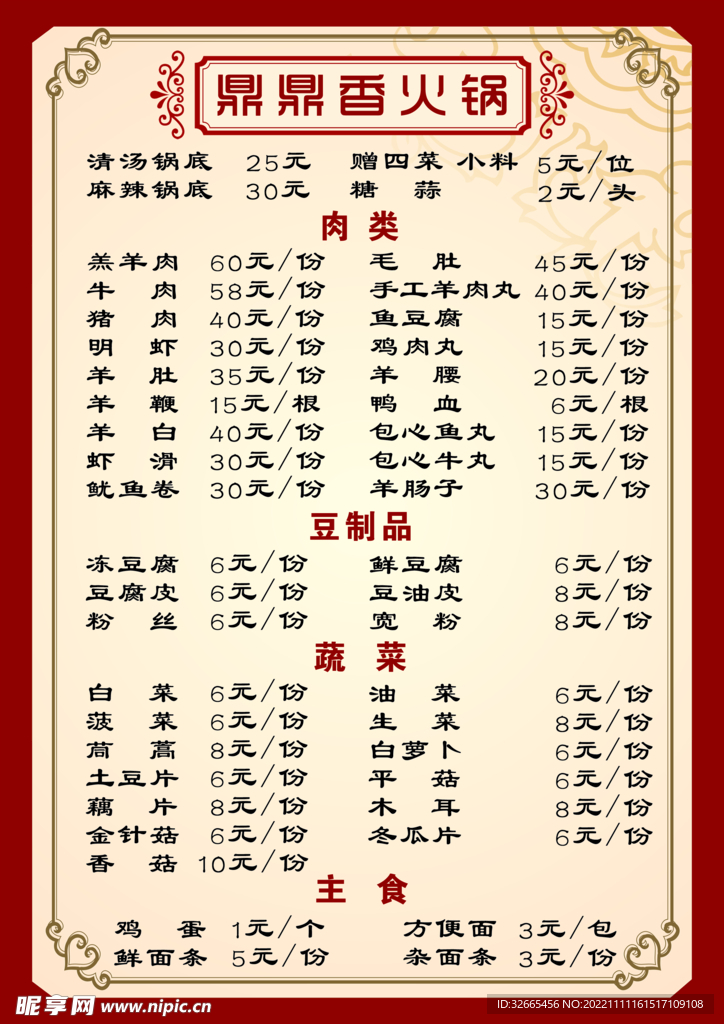 鼎鼎香火锅
清汤锅底 25元 赠四菜 小料 5元/位
麻辣锅底 30元 糖 蒜 2元/头
肉 类
羔羊肉 60元/份 毛 肚 45元/份
牛 肉 58元/份 手工羊肉丸 40元/份
猪 肉 40元/份 鱼豆腐 15元/份
明 虾 30元/份 鸡肉丸 15元/份
羊 肚 35元/份 羊 腰 20元/份
羊 鞭 15元/根 鸭 血 6元/根
羊 白 40元/份 包心鱼丸 15元/份
虾 滑 30元/份 包心牛丸 15元/份
鱿鱼卷 30元/份 羊肠子 30元/份
豆制品
冻豆腐 6元/份 鲜豆腐 6元/份
豆腐皮 6元/份 豆油皮 8元/份
粉 丝 6元/份 宽 粉 8元/份
蔬 菜
白 菜 6元/份 油 菜 6元/份
菠 菜 6元/份 生 菜 8元/份
茼 蒿 8元/份 白萝卜 6元/份
土豆片 6元/份 平 菇 6元/份
藕 片 8元/份 木 耳 8元/份
金针菇 6元/份 冬瓜片 6元/份
香 菇 10元/份
主 食
鸡 蛋 1元/个 方便面 3元/包
鲜面条 5元/份 杂面条 3元/份
昵享网 www.nipic.cn
ID:32665456 NO:20221111161517109108